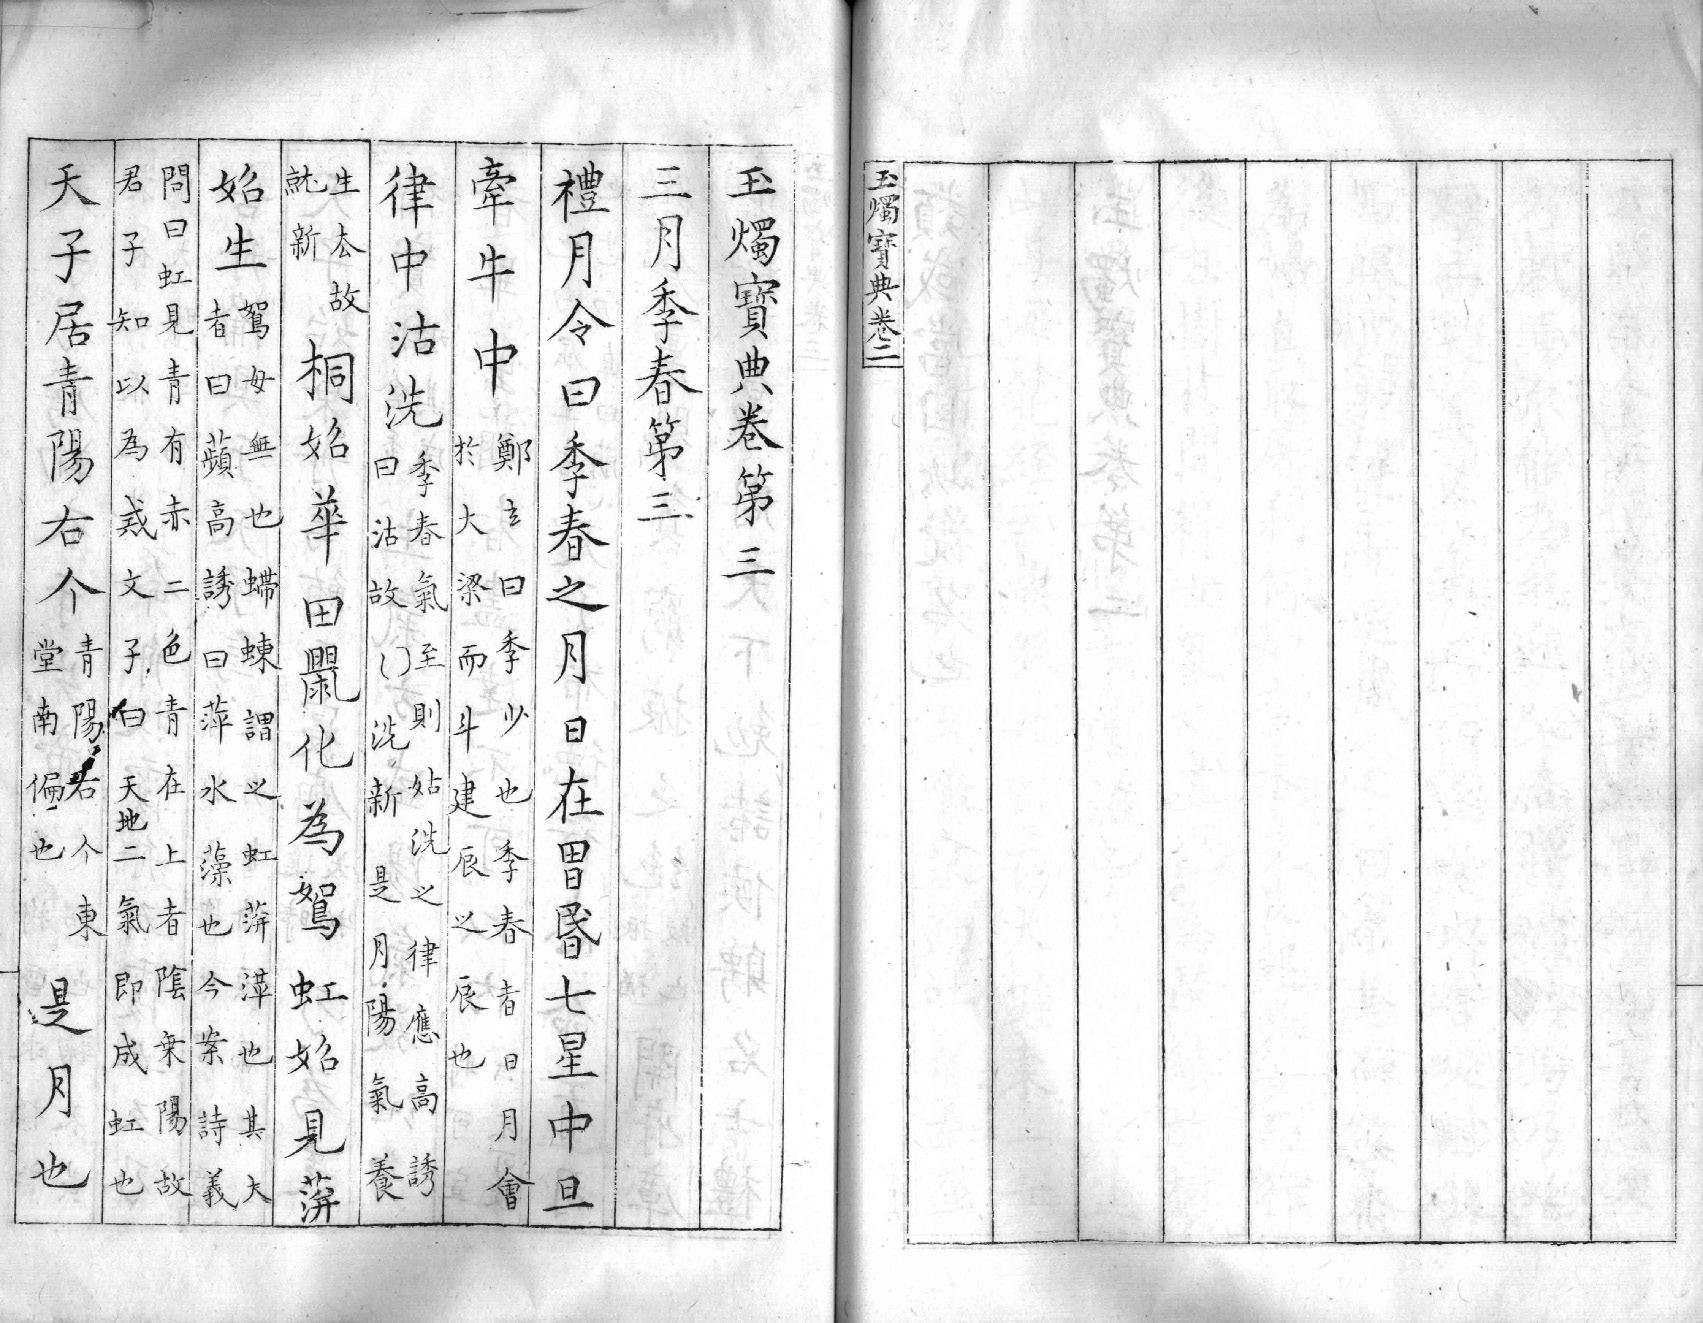 玉燭寶典卷二
玉燭寶典卷第三
三月季春第三
禮月令曰季春之月日在胃昬七星中旦
牽牛中鄭玄曰季少也季春者日月會於大梁而斗建辰之辰也
律中沽洗季春氣至則姑洗之律應高誘曰沽故()洗新是月陽氣養
生去故就新桐始華田鼠化為鴽虹始見蓱
始生鴽母無也螮蝀謂之虹蓱萍也其大者曰蘋高誘曰萍水藻也今案詩義
問曰虹見青有赤二色青在上者陰乗陽故君子知以為戒文子曰天地二氣即成虹也
天子居青陽右个青陽右个東堂南偏也是月也